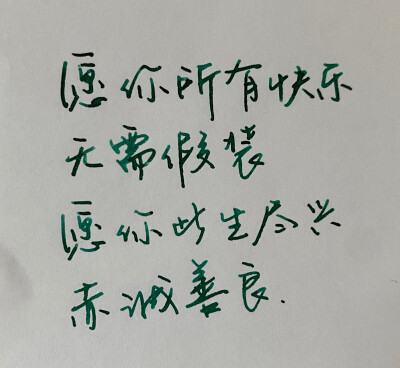 愿你所有快乐
无需假装
愿你此生尽兴
赤诚善良.